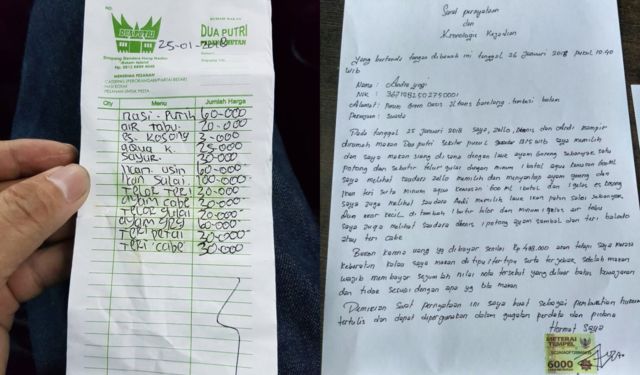 RUMAH MAKAN
DUA PUTRI
25-01-2018
MENERIMA PESANAN
Qty Menu Jumlah Harga
nasi. Putih 60-000
air tabu. 20-000
es. kosong 2-000
25-000
sayur. 30-000
Ikan. 60-000
Ikan Sulai 100-000
Telor Teri 20-000
ayam cabe 20-000
Telor gulai 20-000
60-000
Teri petai
Teri cabe 30-000
Surat pernyataan
dan
Kronologis Kejadian
Yang bertanda tangan dibawah ini tanggal 26 Januari 2018 pukul 10.40
WIB
Nama : Andre yogi
NIK : 3671982502750001
Alamat : Perum Green Oasis Jl trans barelang. tembesi batam
Pekerjaan : Swasta
Pada tanggal 25 Januari 2018 saya, Zello, dan Andi mampir
dirumah makan Dua putri sekitar pukul WIB saya memilih
dan saya makan siang di sana dengan lauk ayam Goreng sebanyak satu
potong dan sebutir telur gulai dengan minum 1 botol aqua kemasan
saya melihat saudara zello memilih dan menyantap ayam goreng dan
ikan teri serta minum aqua kemasan 600 ml 1 botol dan 1 gelas es kosong
saya juga melihat saudara Andi memilih lauk ikan patin salai sebanyak
ekor kecil di tambah 1 butir telor dan minum 1 gelas air tebu
saya juga melihat saudara denis 1 potong ayam sambal dan teri balado
atau teri cabe
uang yg dibayar senilai Rp 418.000 akan tetapi saya merasa
keberatan kalau saya makan di tipu / tertipu serta terjebak, setelah makan
wajib membayar sejumlah nilai nota tersebut yang diluar batas kewajaran
dan tidak sesuai dengan apa yg kita makan
Demikian surat pernyataan ini saya buat sebagai
tertulis dan dapat dipergunakan dalam gugatan perdata dan pidana
Hormat Saya
METERAI
TEMPEL
6000